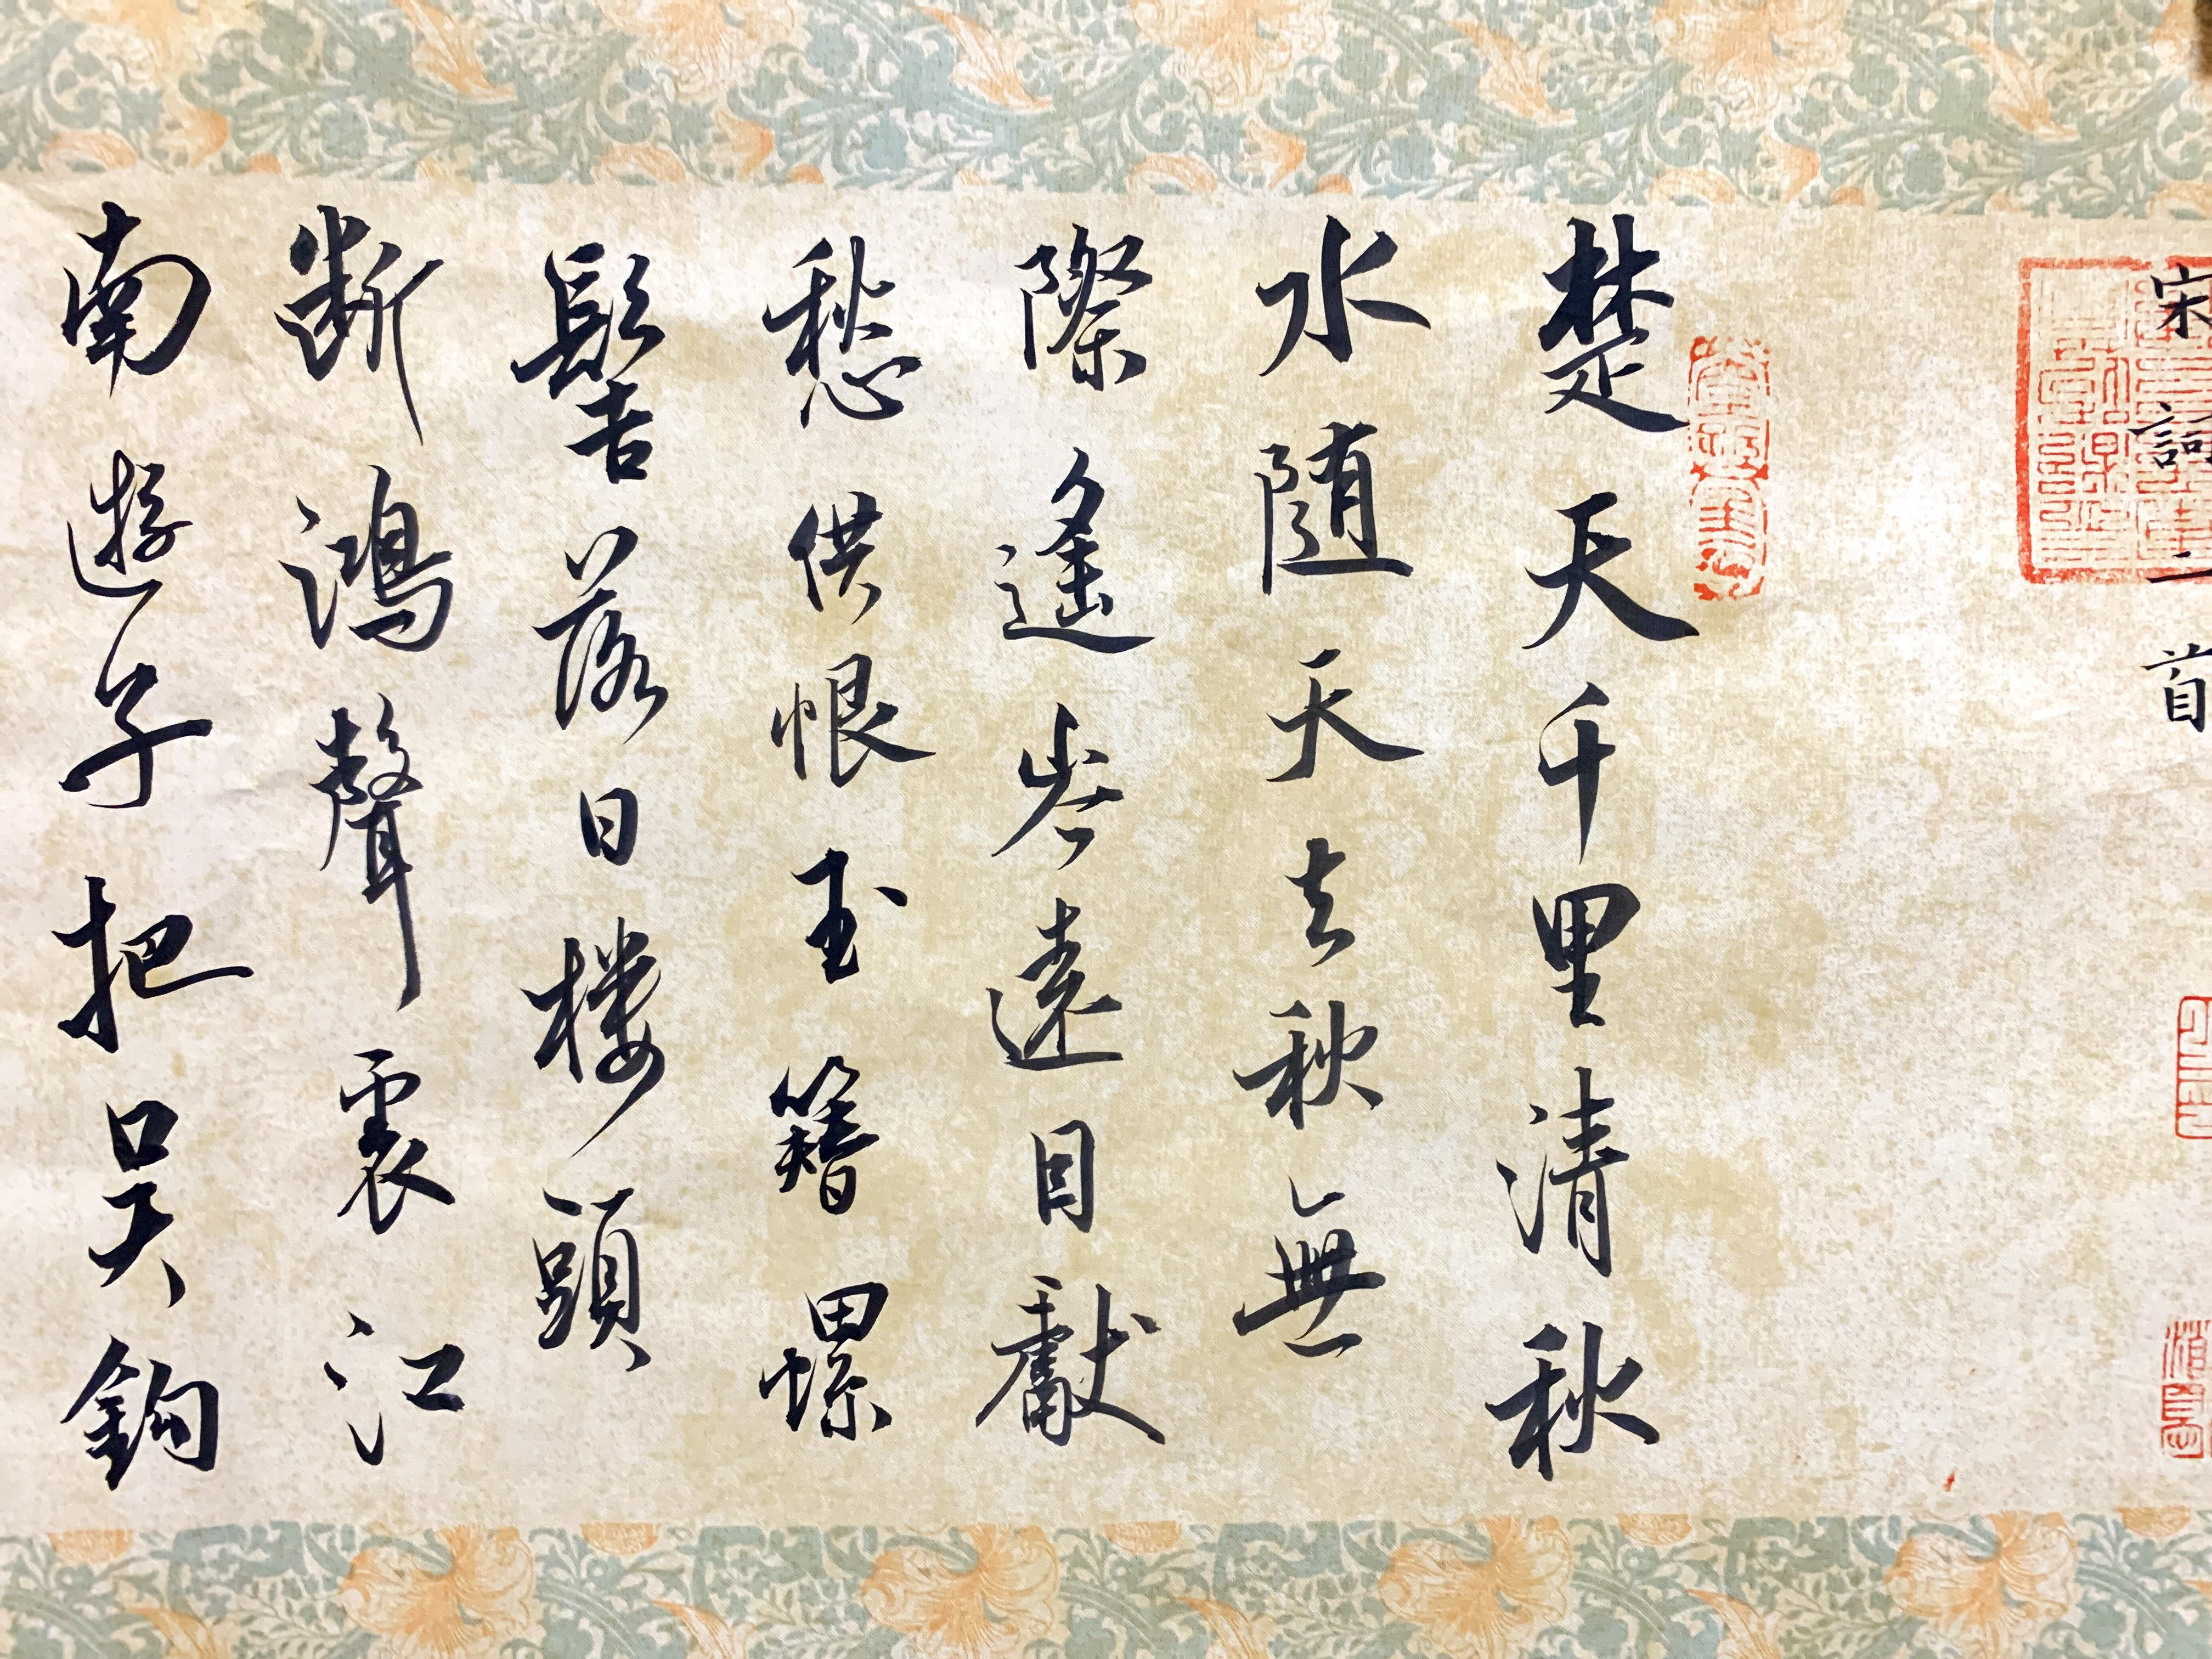 宋詞一首
楚天千里清秋
水随天去秋無
際遙岑遠目獻
愁供恨玉簪螺
髻落日楼頭
断鴻聲裏江
南遊子把吳鈎